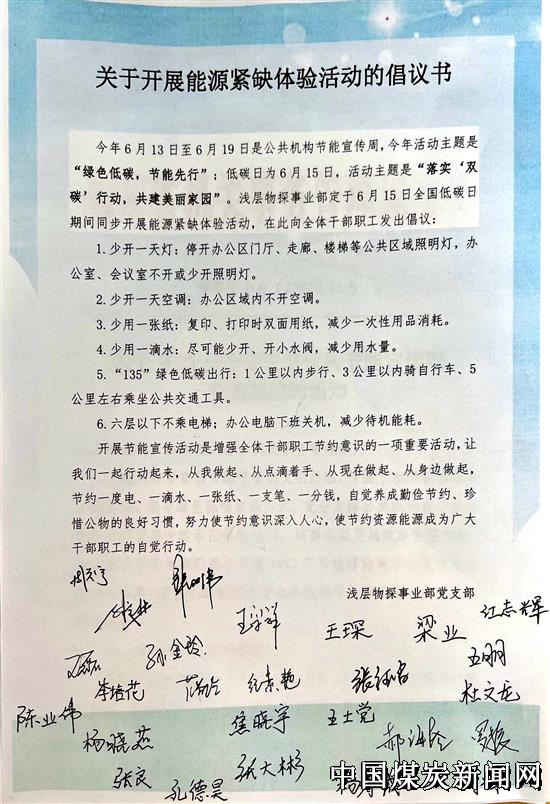 关于开展能源紧缺体验活动的倡议书
今年6月13日至6月19日是公共机构节能宣传周，今年活动主题是
“绿色低碳，节能先行”；低碳日为6月15日，活动主题是“落实‘双
碳’行动，共建美丽家园”。浅层物探事业部定于6月15日全国低碳日
期间同步开展能源紧缺体验活动，在此向全体干部职工发出倡议：
1.少开一天灯：停开办公区门厅、走廊、楼梯等公共区域照明灯，办
公室、会议室不开或少开照明灯。
2.少开一天空调：办公区域内不开空调。
3.少用一张纸：复印、打印时双面用纸，减少一次性用品消耗。
4.少用一滴水：尽可能少开、开小水阀，减少用水量。
5.“135”绿色低碳出行：1公里以内步行、3公里以内骑自行车、5
公里左右乘坐公共交通工具。
6.六层以下不乘电梯；办公电脑下班关机，减少待机能耗。
开展节能宣传活动是增强全体干部职工节约意识的一项重要活动，让
我们一起行动起来，从我做起、从点滴着手、从现在做起、从身边做起，
节约一度电、一滴水、一张纸、一支笔、一分钱，自觉养成勤俭节约、珍
惜公物的良好习惯，努力使节约意识深入人心，使节约资源能源成为广大
干部职工的自觉行动。
浅层物探事业部党支部
王琛 梁业 江志辉
孙金玲
李桂花 王明
杜文龙
陈业伟 焦晓宇 王士党
杨晓燕
张良 孔德昊 张大彬
中国煤炭新闻网